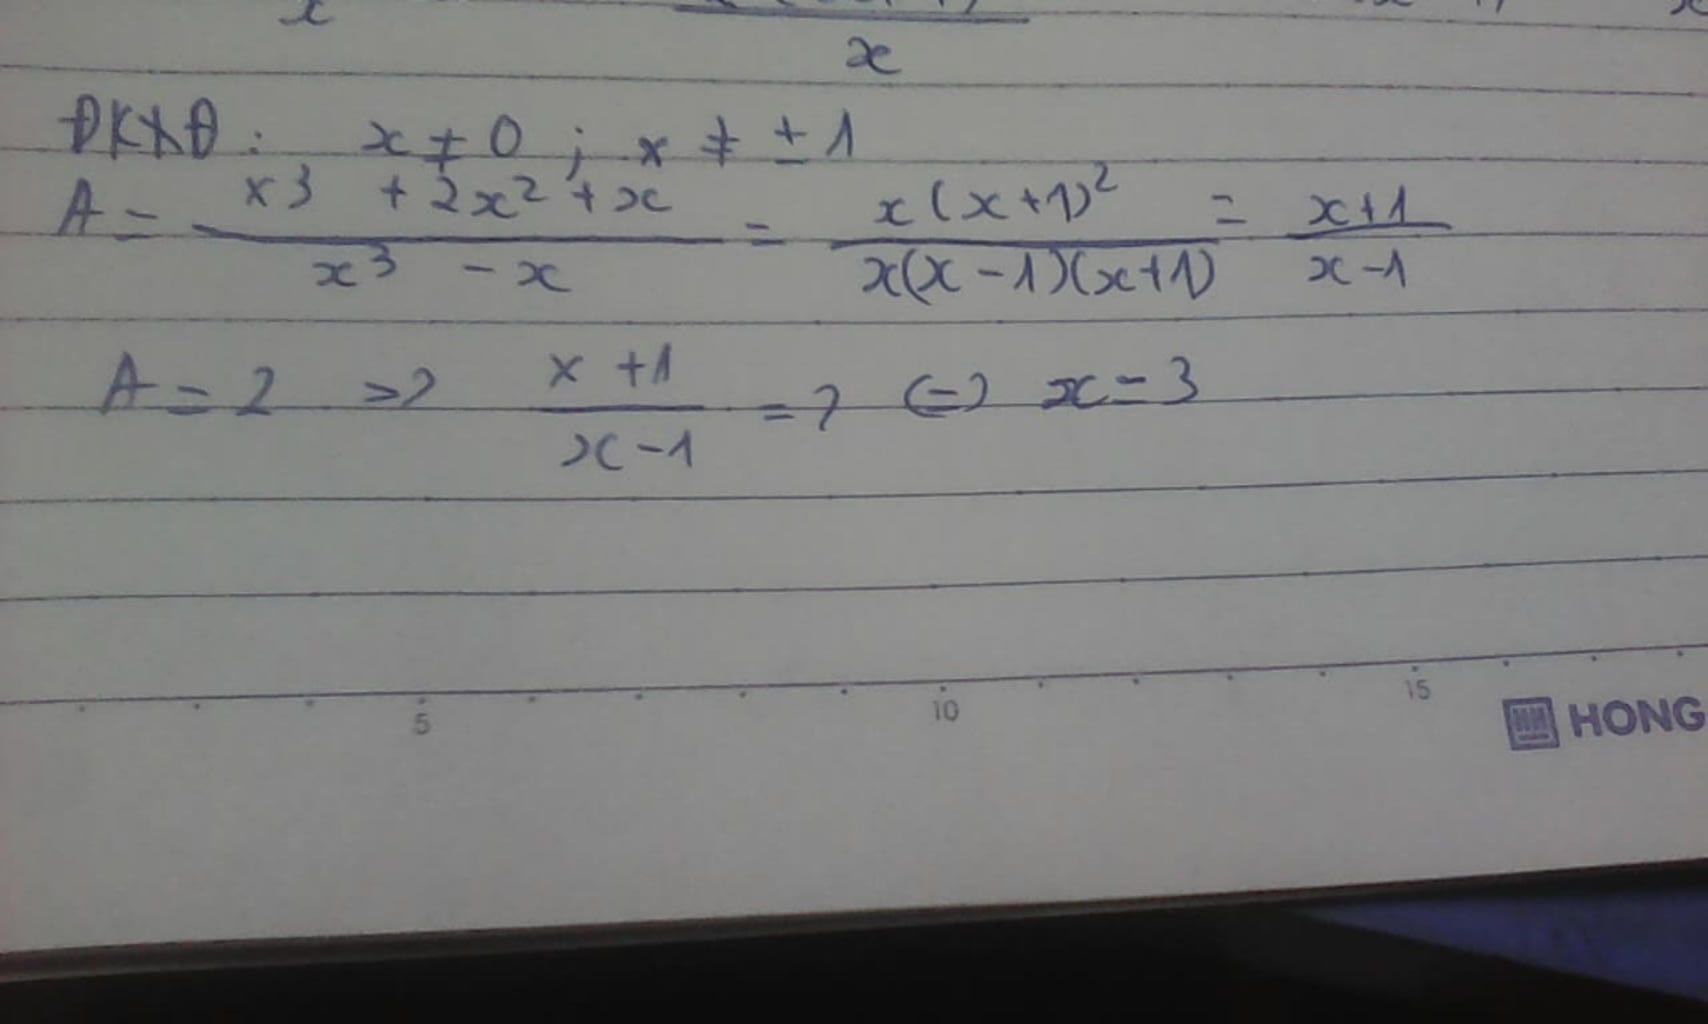 x x
ĐKXĐ: x ≠ 0 ; x ≠ ± 1
A = \frac{x^3 + 2x^2 + x}{x^3 - x} = \frac{x(x+1)^2}{x(x-1)(x+1)} = \frac{x+1}{x-1}
A = 2 => \frac{x+1}{x-1} = 2 <=> x = 3
5 10 15
HONG